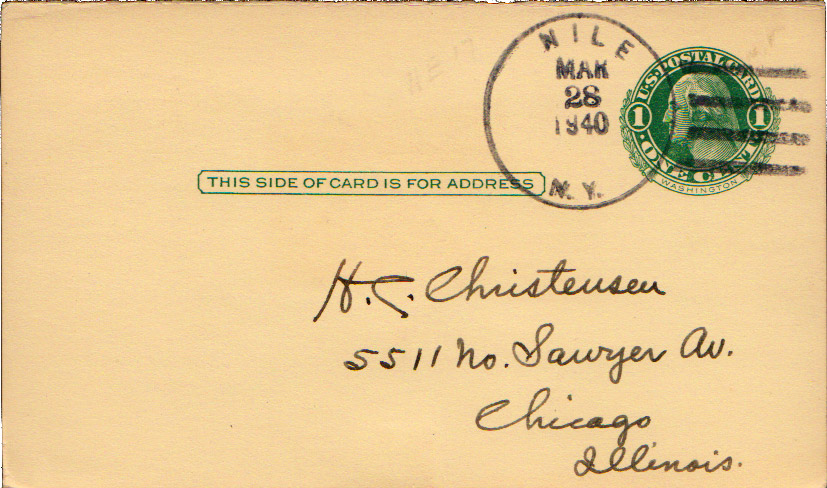 NILE
MAR
28
1940
N.Y.
U.S. POSTAL CARD
1 1
ONE CENT
WASHINGTON
THIS SIDE OF CARD IS FOR ADDRESS
H. C. Christensen
5511 No. Sawyer Av.
Chicago
Illinois.